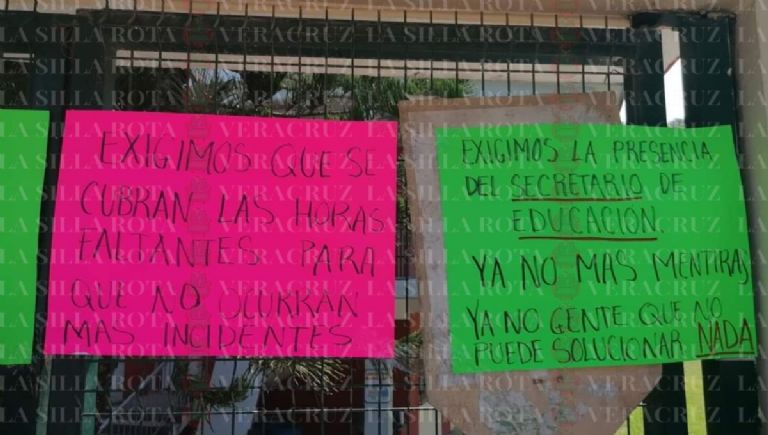 EXIGIMOS QUE SE
CUBRAN LAS HORAS
FALTANTES PARA
QUE NO OCURRAN
MAS INCIDENTES
EXIGIMOS LA PRESENCIA
DEL SECRETARIO DE
EDUCACIÓN.
YA NO MAS MENTIRAS
YA NO GENTE QUE NO
PUEDE SOLUCIONAR NADA
LA SILLA ROTA VERACRUZ